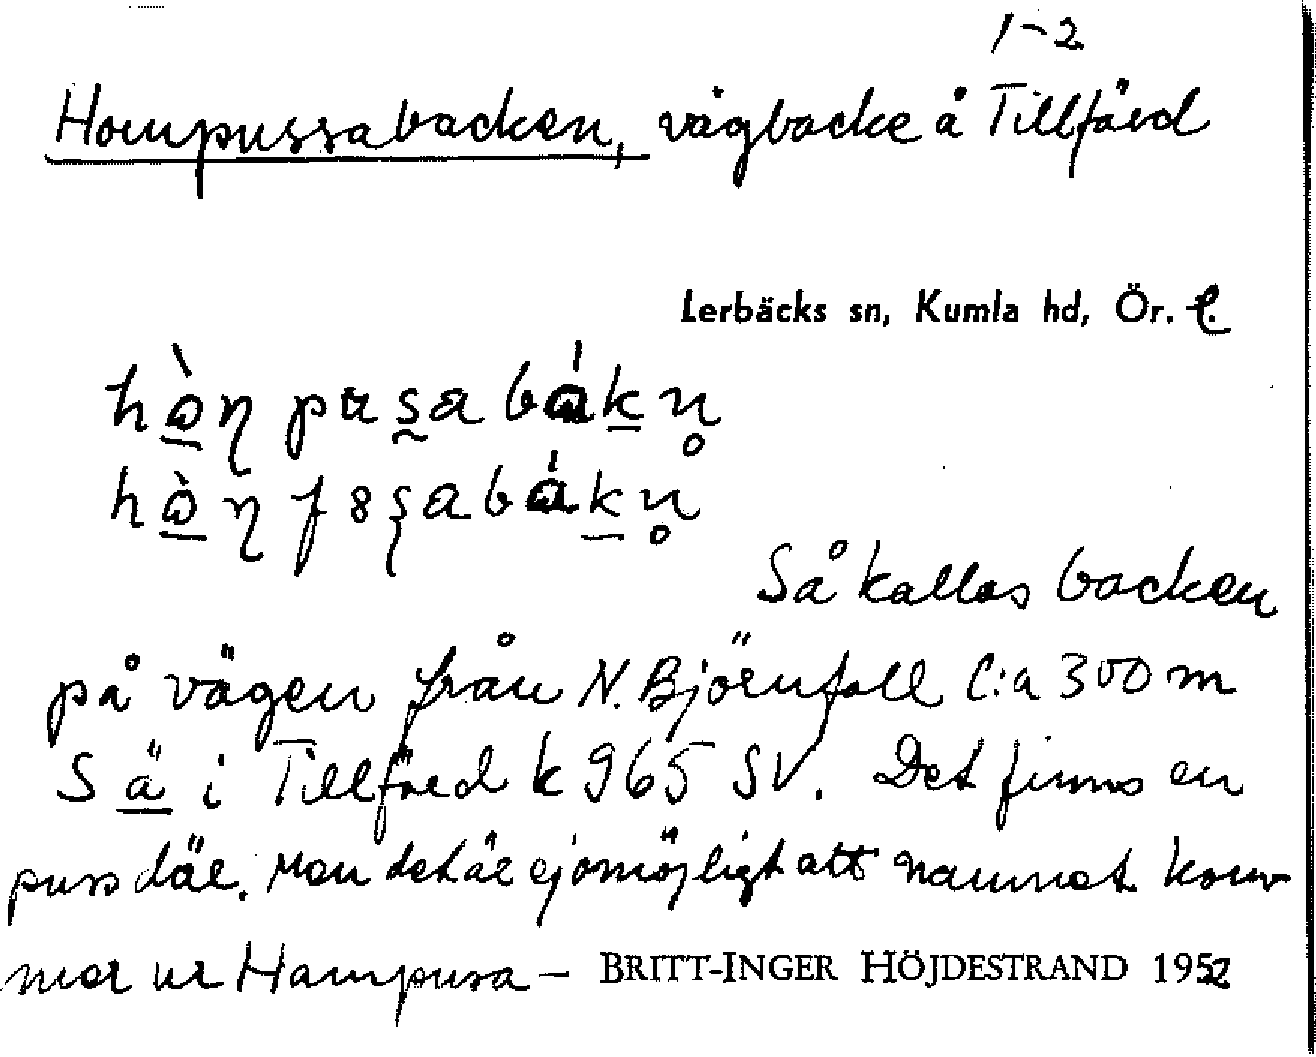 1-2
Hompussabacken, vägbacke å Tillfärd
Lerbäcks sn, Kumla hd, Ör. l.
Så kallas backen
på vägen från N. Björnfall c:a 300 m
S ä i Tillfärd k 965 SV. Det finns en
puss där. Men det är ej omöjligt att namnet kom-
mer ur Hampusa – BRITT-INGER HÖJDESTRAND 1952